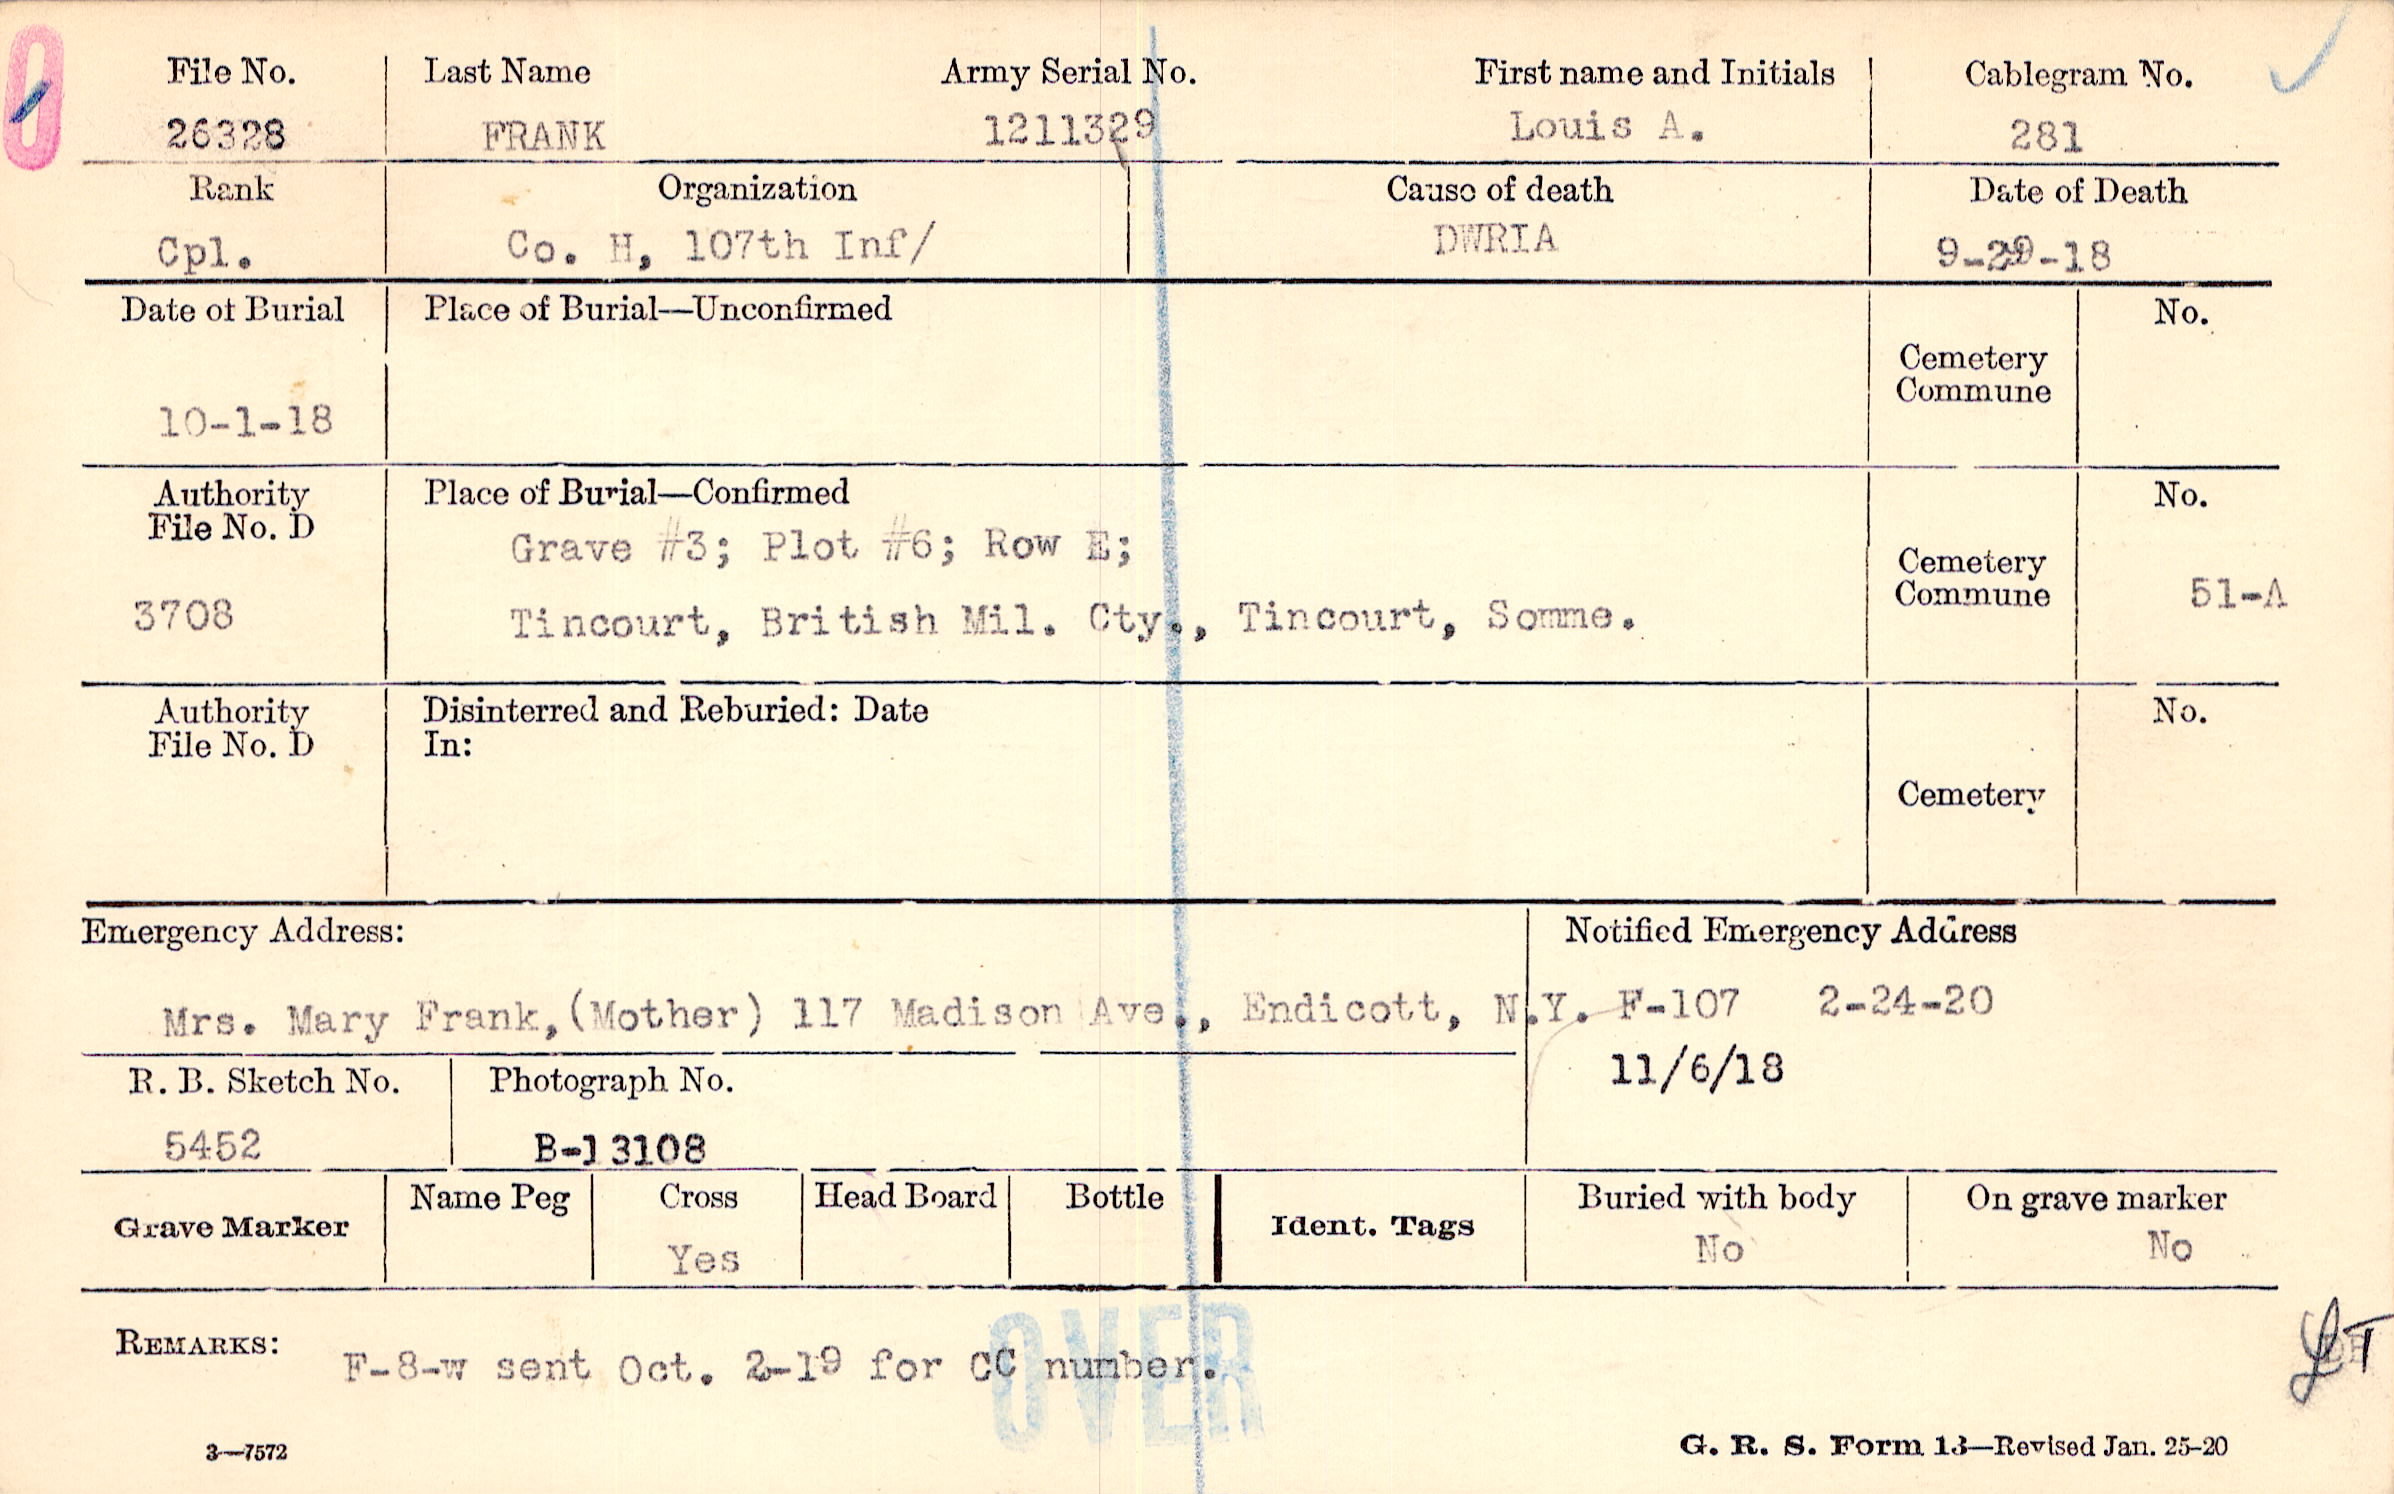 File No. Last Name Army Serial No. First name and Initials Cablegram No.
26328 FRANK 1211329 Louis A. 281
Rank Organization Cause of death Date of Death
Cpl. Co. H, 107th Inf/ DWRIA 9-29-18
Date of Burial Place of Burial—Unconfirmed No.
Cemetery
Commune
10-1-18
Authority Place of Burial—Confirmed No.
File No. D
Grave #3; Plot #6; Row E;
Cemetery
Commune 51-A
3708 Tincourt, British Mil. Cty., Tincourt, Somme.
Authority Disinterred and Reburied: Date No.
File No. D In:
Cemetery
Emergency Address: Notified Emergency Address
Mrs. Mary Frank,(Mother) 117 Madison Ave., Endicott, N.Y. F-107 2-24-20
11/6/18
R. B. Sketch No. Photograph No.
5452 B-13108
Grave Marker Name Peg Cross Head Board Bottle Ident. Tags Buried with body On grave marker
Yes No No
OVER
REMARKS: F-8-w sent Oct. 2-19 for CC number.
3—7572 G. R. S. Form 13—Revised Jan. 25-20